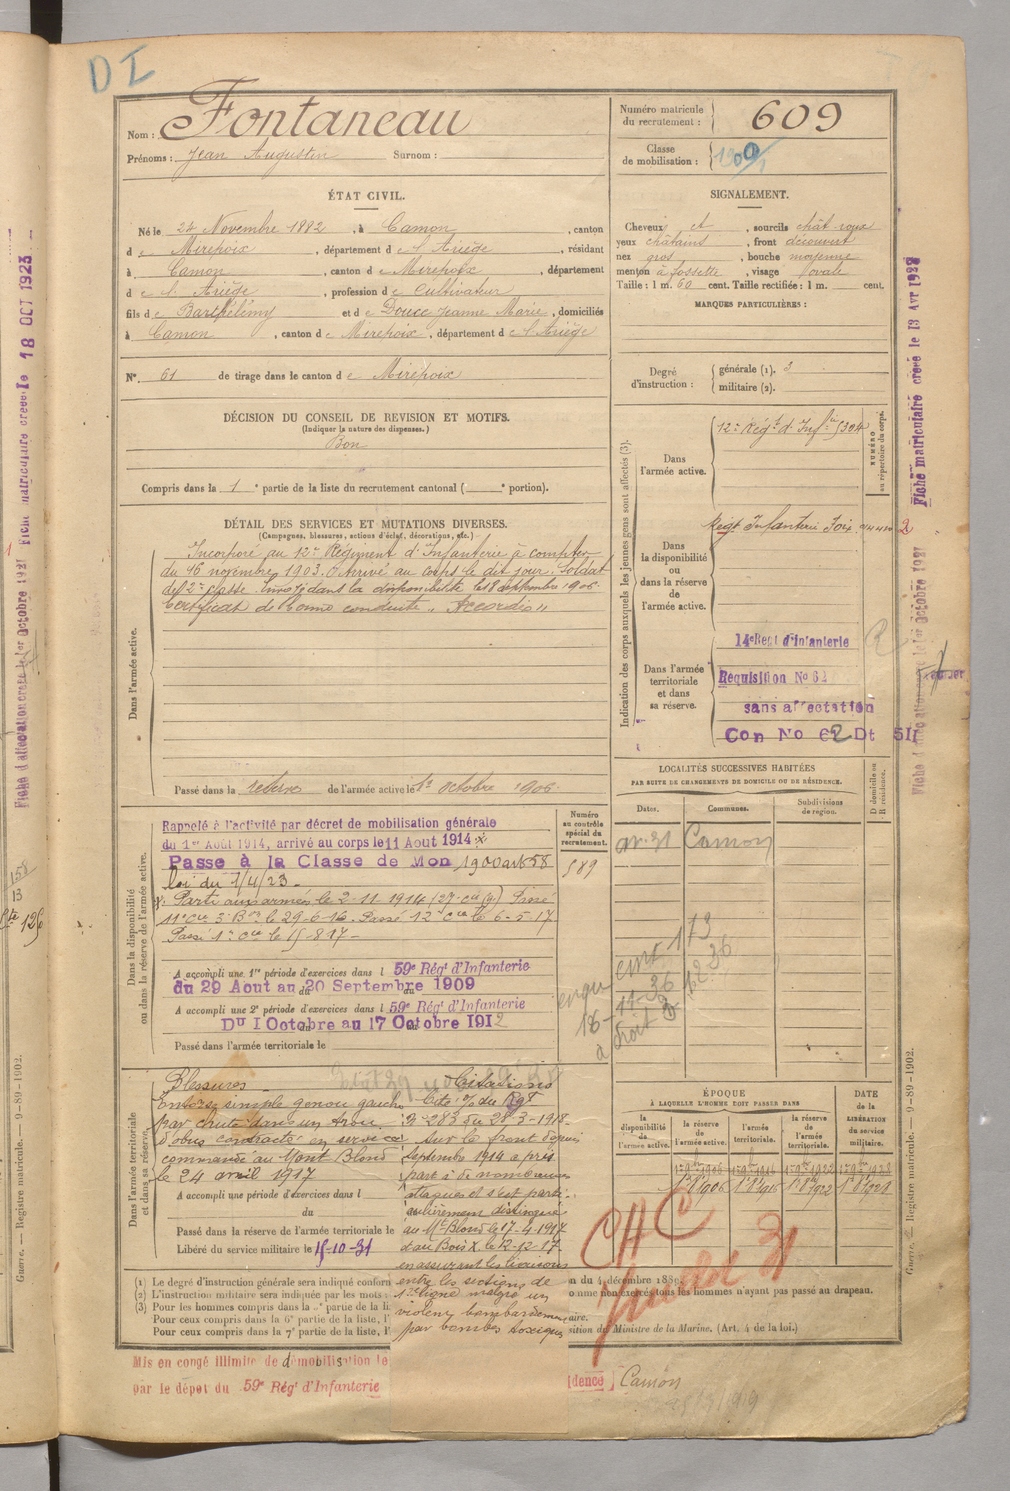 DI
Nom : Fontaneau
Prénoms : Jean Augustin Surnom :
Numéro matricule du recrutement : 609
Classe de mobilisation :
ÉTAT CIVIL.
Né le 24 Novembre 1882, à Camon, canton
de Mirepoix, département de l'Ariège, résidant
à Camon, canton de Mirepoix, département
de l'Ariège, profession de Cultivateur
fils de Barthélémy et de Doucé Jeanne Marie, domiciliés
à Camon, canton de Mirepoix, département de l'Ariège
SIGNALEMENT.
Cheveux et, sourcils chât roux
yeux châtains, front découvert
nez gros, bouche moyenne
menton à fossette, visage ovale
Taille : 1 m. 60 cent. Taille rectifiée : 1 m. cent.
MARQUES PARTICULIÈRES :
N° 61 de tirage dans le canton de Mirepoix
Degré d'instruction : générale (1). 3
militaire (2).
DÉCISION DU CONSEIL DE REVISION ET MOTIFS.
(Indiquer la nature des dispenses.)
Bon
Compris dans la 1e partie de la liste du recrutement cantonal ( e portion).
DÉTAIL DES SERVICES ET MUTATIONS DIVERSES.
(Campagnes, blessures, actions d'éclat, décorations, etc.)
Dans l'armée active.
Incorporé au 12e Régiment d'Infanterie à compter
du 16 novembre 1903. Arrivé au corps le dit jour. Soldat
de 2e classe. Envoyé dans la disponibilité le 18 septembre 1906.
Certificat de bonne conduite "Accordé"
Passé dans la réserve de l'armée active le 1er octobre 1906
Indication des corps auxquels les jeunes gens sont affectés (3).
NUMÉRO au répertoire du corps.
Dans l'armée active.
12e Régt d'Infie 5304
Dans la disponibilité ou dans la réserve de l'armée active.
Régt Infanterie Foix
Dans l'armée territoriale et dans sa réserve.
14e Regt d'Infanterie
Requisition No 62
sans affectation
Con No 62 Dt 5II
LOCALITÉS SUCCESSIVES HABITÉES
PAR SUITE DE CHANGEMENTS DE DOMICILE OU DE RÉSIDENCE.
Dates. Communes. Subdivisions de région. D domicile ou R résidence.
av. 31 Camon
Dans la disponibilité ou dans la réserve de l'armée active.
Numéro au contrôle spécial du recrutement.
589
Rappelé à l'activité par décret de mobilisation générale
du 1er Août 1914, arrivé au corps le 11 Aout 1914
Passe à la Classe de Mon 1900 art 58
loi du 1/4/23
Parti aux armées le 2-11-1914 (27e Cie) Passé
11e Cie 3e Bon le 29-6-16. Passé 12e Cie le 6-5-17
Passé 1e Cie le 15-8-17
A accompli une 1re période d'exercices dans l 59e Rég' d'Infanterie
du 29 Aout au 20 Septembre 1909
A accompli une 2e période d'exercices dans l 59e Rég' d'Infanterie
Du I Octobre au 17 Octobre 1912
Passé dans l'armée territoriale le
Dans l'armée territoriale et dans sa réserve.
Blessures
Entorse simple genou gauche
par chute dans un trou
d'obus contractée en service
commandé au Mont Blond
le 24 avril 1917
A accompli une période d'exercices dans l
du
Passé dans la réserve de l'armée territoriale le
Libéré du service militaire le 15-10-31
Citations
Cité o/ du Rgt
n° 283 du 28-3-1918
Sur le front depuis
Septembre 1914 a pris
part à de nombreuses
attaques et s'est parti-
culièrement distingué
au Mt Blond le 17-4-1917
et au Bois X. le 12-12-17
en assurant les liaisons
entre les sections de
1re ligne malgré un
violent bombardement
par bombes toxiques
ÉPOQUE
À LAQUELLE L'HOMME DOIT PASSER DANS
la disponibilité de l'armée active. la réserve de l'armée active. l'armée territoriale. la réserve de l'armée territoriale.
DATE de la LIBÉRATION du service militaire.
1r 8bre 1906 1r 8bre 1916 1r 8bre 1922 1r 8bre 1928
(1) Le degré d'instruction générale sera indiqué conform
(2) L'instruction militaire sera indiquée par les mots :
(3) Pour les hommes compris dans la 1re partie de la li
Pour ceux compris dans la 6e partie de la liste, l'
Pour ceux compris dans la 7e partie de la liste, l'
n du 4 décembre 1889.
omme non exercés tous les hommes n'ayant pas passé au drapeau.
aire.
sition du Ministre de la Marine. (Art. 4 de la loi.)
Mis en congé illimité de démobilisation le
par le dépôt du 59e Rég' d'Infanterie
dence ] Camon
Guerre. — Registre matricule. — 9-89-1902.
Guerre. — Registre matricule. — 9-89-1902.
Fiche matriculaire créée le 18 OCT 1923
Fiche d'affectation créée le 1er Octobre 1927
Fiche matriculaire créée le 13 Avr 1928
Fiche d'affectation créée le 1er Octobre 1927